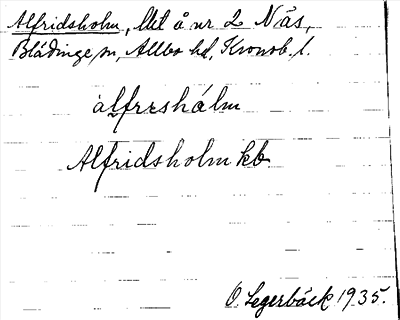 Alfridsholm, lht å nr 2 Näs,
Blädinge sn, Allbo hd, Kronob. l.
àlfrɪshálm
Alfridsholm kb
O. Legerbäck 1935.